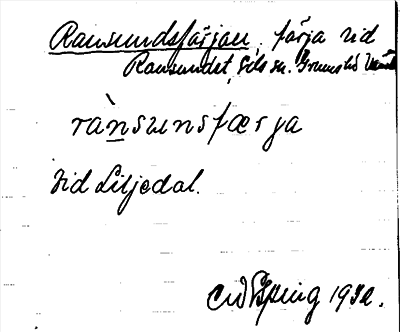 Ransundsfärjan, färja vid
Ransundet, Gils sn. Grums hd
rànsunsfærja
vid Liljedal.
1932.